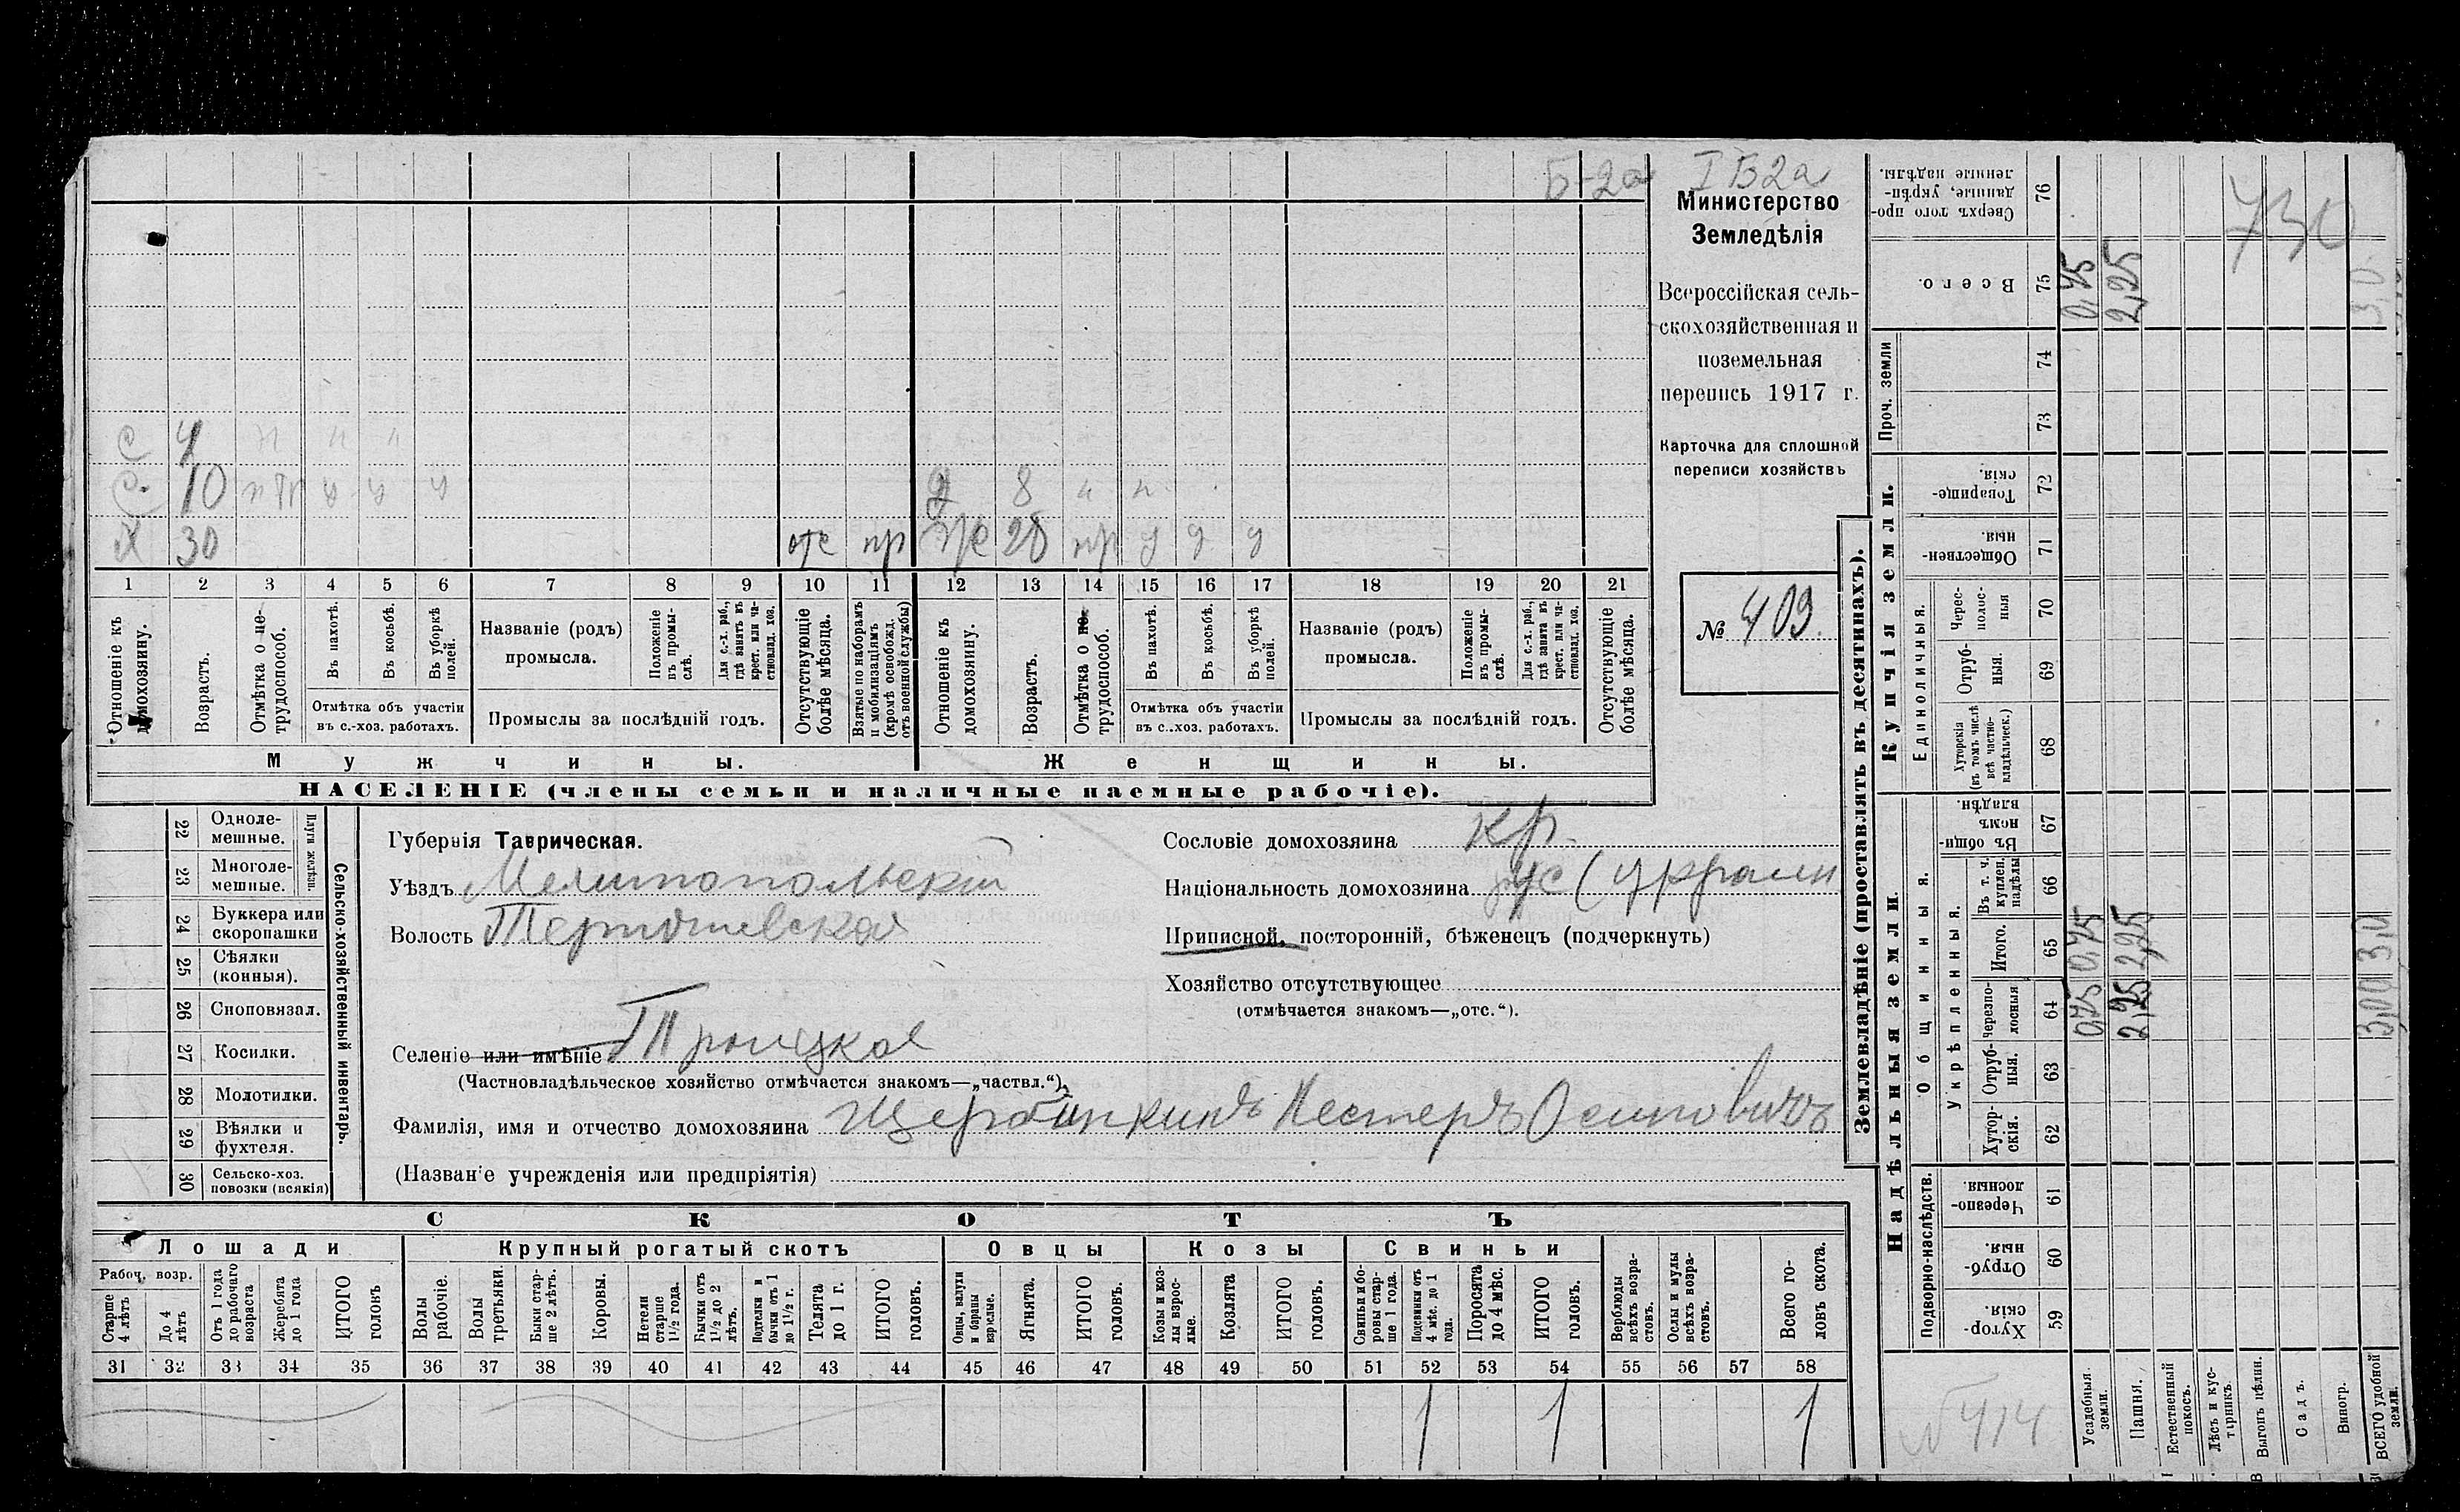 Б-2а
I Б2а
Министерство
Земледѣлія
Всероссійская сель-
скохозяйственная и
поземельная
перепись 1917 г.
Карточка для сплошной
переписи хозяйствъ
№ 409.
С 4 н н н
С. 10 д 8 н н
Х 30 отс пр Же 28 нр у у у
1 2 3 4 5 6 7 8 9 10 11 12 13 14 15 16 17 18 19 20 21
Отношеніе къ домохозяину.
Возрастъ.
Отмѣтка о не-трудоспособ.
Въ пахотѣ.
Въ косьбѣ.
Въ уборкѣ полей.
Отмѣтка объ участіи
въ с.-хоз. работахъ.
Названіе (родъ)
промысла.
Положеніе въ промы-слѣ.
Для с.-х. раб., гдѣ занятъ въ крест. или ча-стновлад. хоз.
Промыслы за послѣдній годъ.
Отсутствующіе болѣе мѣсяца.
Взятые по наборамъ и мобилизаціямъ (кромѣ освобожд. отъ военной службы)
Отношеніе къ домохозяину.
Возрастъ.
Отмѣтка о не-трудоспособ.
Въ пахотѣ.
Въ косьбѣ.
Въ уборкѣ полей.
Отмѣтка объ участіи
въ с.-хоз. работахъ.
Названіе (родъ)
промысла.
Положеніе въ промы-слѣ.
Для с.-х. раб., гдѣ занята въ крест. или ча-стновлад. хоз.
Промыслы за послѣдній годъ.
Отсутствующіе болѣе мѣсяца.
Мужчины.
Женщины.
НАСЕЛЕНІЕ (члены семьи и наличные наемные рабочіе).
22 Одноле-мешные.
23 Многоле-мешные.
Плуги желѣзн.
24 Буккера или скоропашки
25 Сѣялки (конныя).
26 Сноповязал.
27 Косилки.
28 Молотилки.
29 Вѣялки и фухтеля.
30 Сельско-хоз. повозки (всякія)
Сельско-хозяйственный инвентарь.
Губернія Таврическая.
Уѣздъ Мелитопольскій
Волость
Селеніе или имѣніе Троицкая
(Частновладѣльческое хозяйство отмѣчается знакомъ—„частвл.“).
Фамилія, имя и отчество домохозяина Щербинкинъ Нестеръ Осиповичъ
(Названіе учрежденія или предпріятія)
Сословіе домохозяина кр.
Національность домохозяина рус (
Приписной, посторонній, бѣженецъ (подчеркнуть)
Хозяйство отсутствующее
(отмѣчается знакомъ—„отс.“).
СКОТЪ
Лошади
Рабоч. возр.
Старше 4 лѣтъ
До 4 лѣтъ
Отъ 1 года до рабочаго возраста
Жеребята до 1 года
ИТОГО головъ
Крупный рогатый скотъ
Волы рабочіе.
Волы третьяки.
Быки стар-ше 2 лѣтъ.
Коровы.
Нетели старше 1½ года.
Бычки отъ 1½ до 2 лѣтъ.
Подтелки и бычки отъ 1 до 1½ г.
Телята до 1 г.
ИТОГО головъ.
Овцы
Овцы, валухи и бараны взрослые.
Ягнята.
ИТОГО головъ.
Козы
Козы и коз-лы взрос-лые.
Козлята
ИТОГО головъ.
Свиньи
Свиньи и бо-ровы стар-ше 1 года.
Подсвинки отъ 4 мѣс. до 1 года.
Поросята до 4 мѣс.
ИТОГО головъ.
Верблюды всѣхъ возра-стовъ.
Ослы и мулы всѣхъ возра-стовъ.
Всего го-ловъ скота.
31 32 33 34 35 36 37 38 39 40 41 42 43 44 45 46 47 48 49 50 51 52 53 54 55 56 57 58
1 1 1
Землевладѣніе (проставлять въ десятинахъ).
Надѣльныя земли.
Купчія земли.
Проч. земли
Сверхъ того про-данные, укрѣп-ленные надѣлы. 76
Всего. 75 0,75 2,25 3,0
730
74
73
Товарище-скія. 72
Обществен-ныя. 71
Единоличныя.
Черес-полос-ныя 70
Отруб-ныя. 69
Хуторскія (въ томъ числѣ всѣ частно-владѣльческ.) 68
Общинныя.
Въ общин-номъ владѣн. 67
Укрѣпленныя.
Въ т. ч. куплен. надѣлы 66
Итого. 65 0,75 2,25 3,0
Черезпо-лосныя 64 0,75 2,25 3,00
Отруб-ныя. 63
Хутор-скія. 62
Подворно-наслѣдств.
Черезпо-лосныя. 61
Отруб-ныя. 60
Хутор-скія. 59
№ 414
Усадебныя земли.
Пашня.
Естественный покосъ.
Лѣсъ и кус-тарникъ.
Выгонъ цѣлин.
Садъ.
Виногр.
ВСЕГО удобной земли.